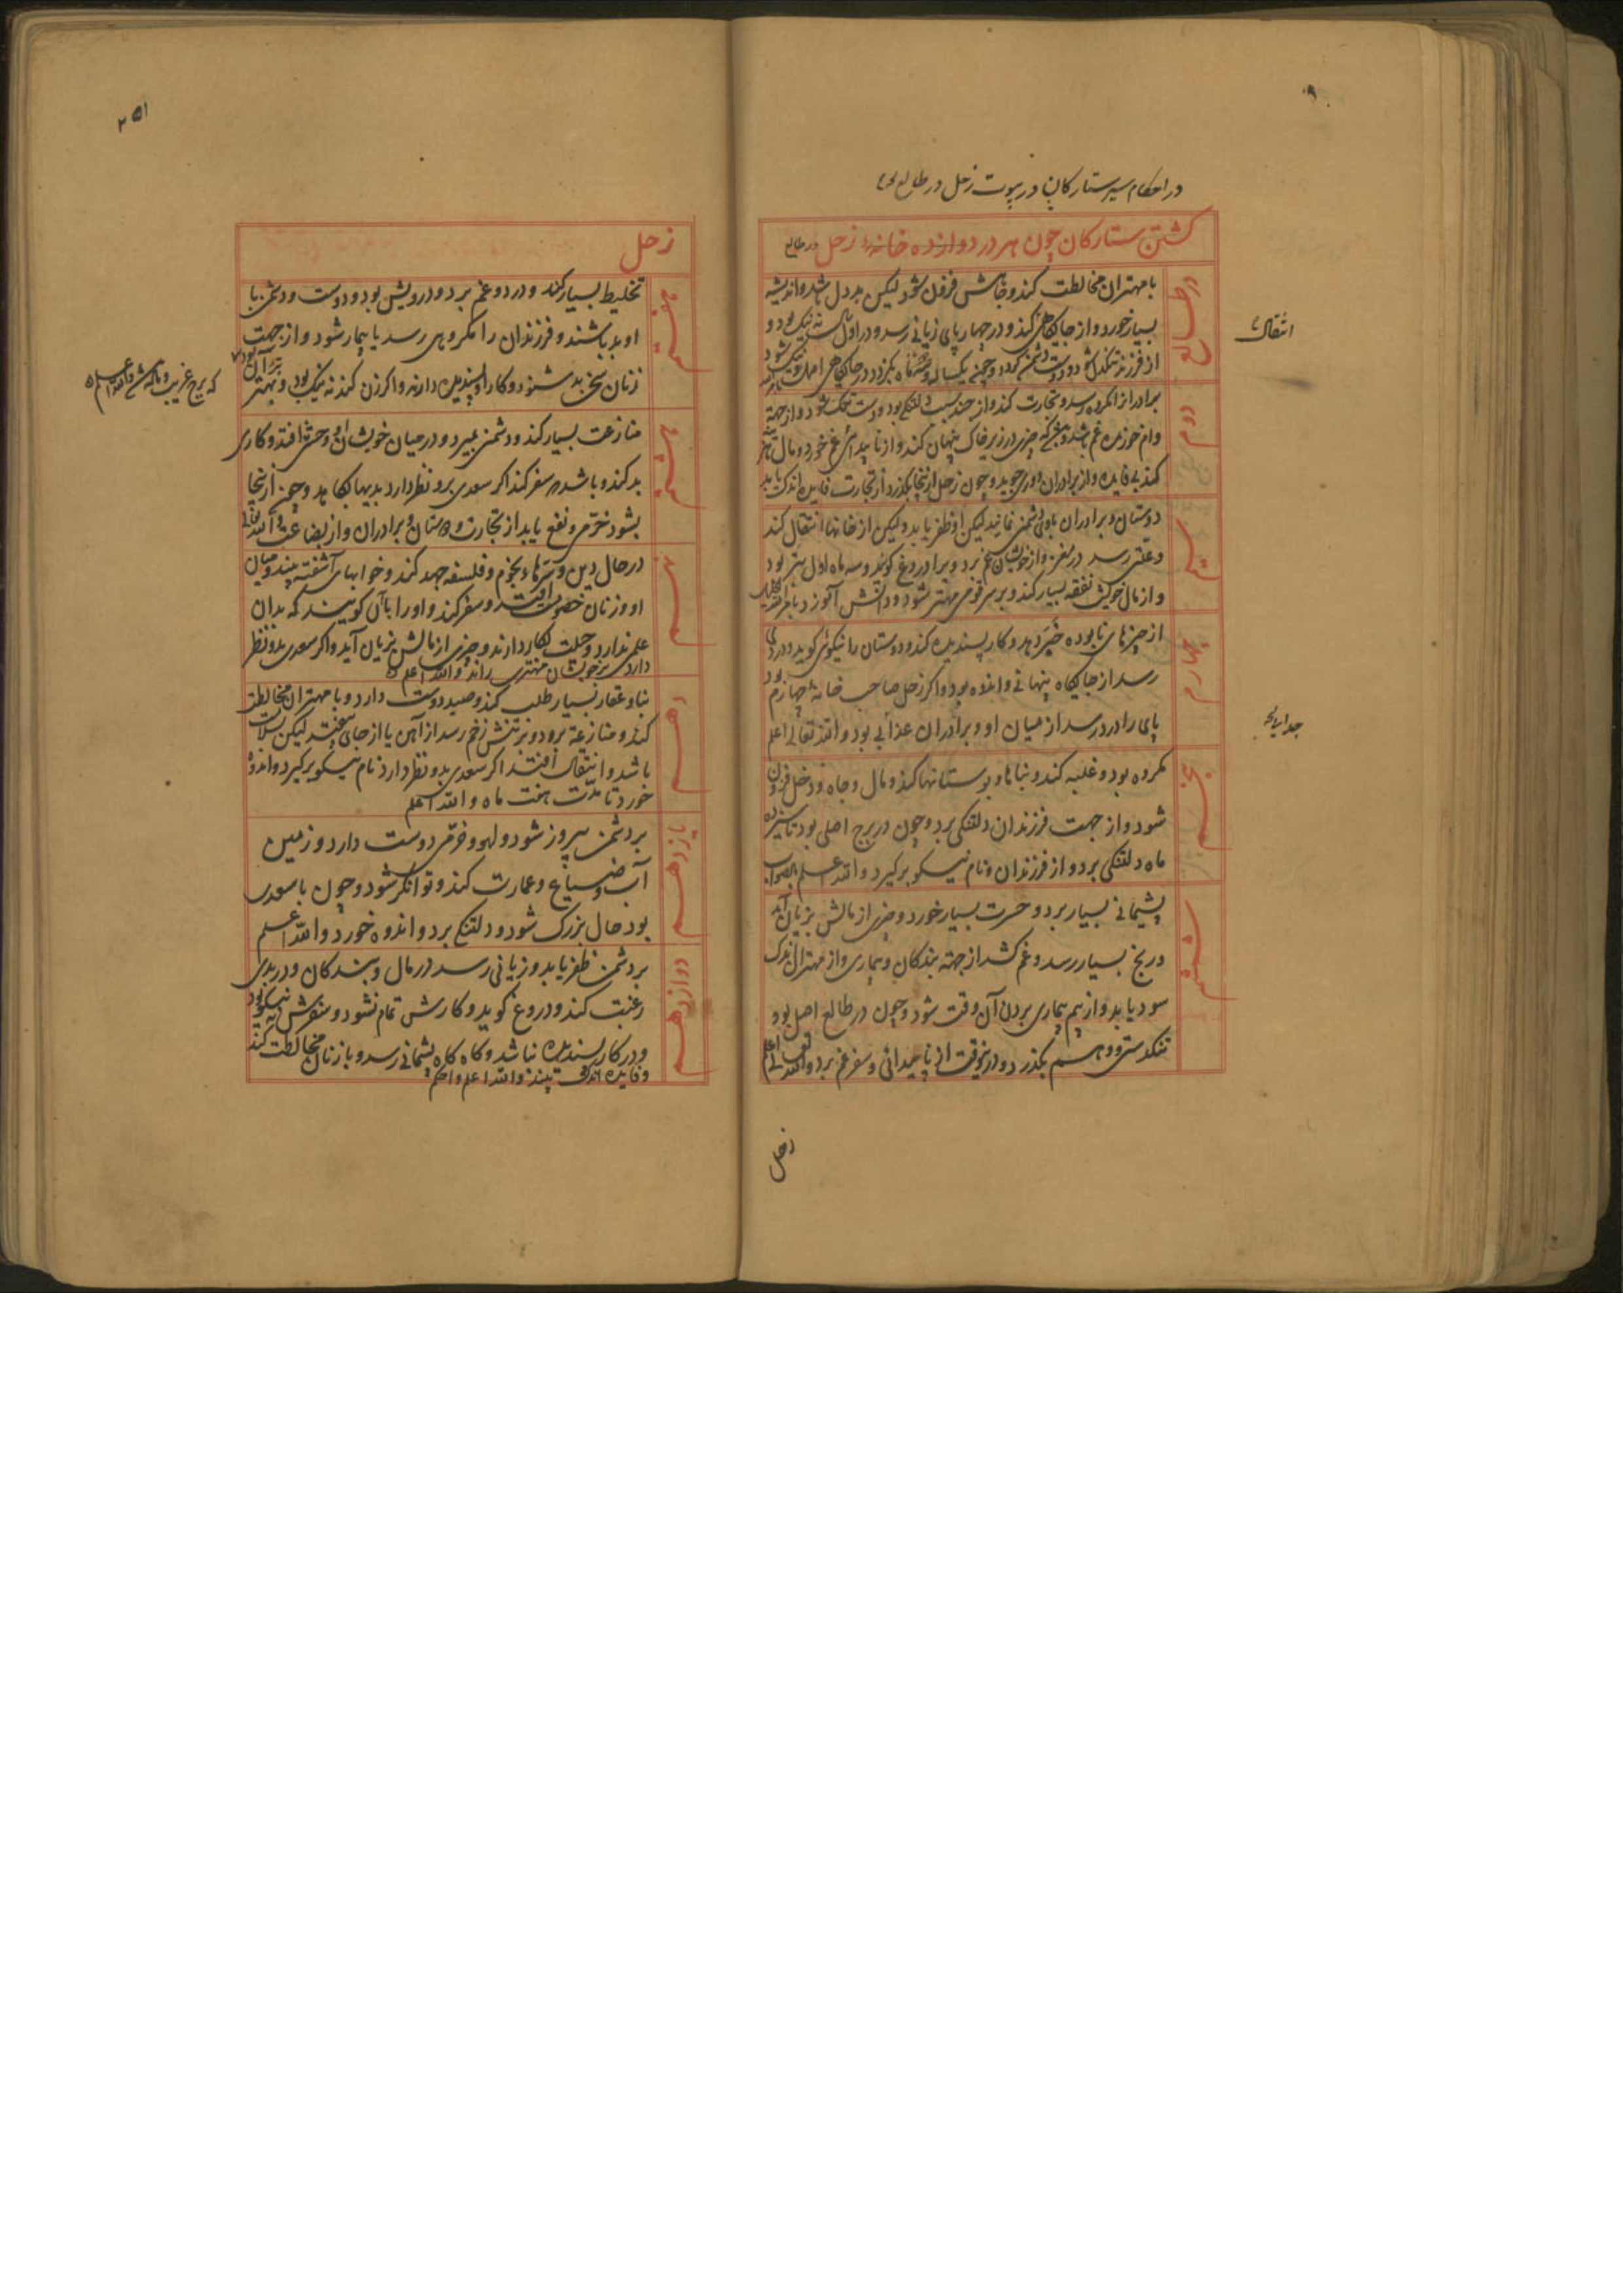 در احکام سیر ستارکان در بیوت زحل در طالع
کشتن ستارکان چون هر در دوازده خانه زحل در طالع
در طالع
با مهتران مخالطت کند و لیکن بد دل باشد و اندیشه
بسیار خورد و از جایکاهی کند و در چهارپای زیانی رسد و در اول نه نیک بود و
از فرزند تنکدل شود و دوست دشمن کردد و چون یکسال و بکذرد در جایکاهی
دوم
برادر از مکروه رسد و تجارت کند و از چند سبب دلتنکی بود و دست تنک شود و از جهة
وام خوردن غم چیزی در زیر خاک پنهان کند و از ناپیدائی غم خورد و مال
کند بی فایده و از برادران دوری جوید و چون زحل از اینجا بکذرد از تجارت فایده اندک یابد
سیم
دوستان و برادران با وی دشمنی نمایند لیکن او ظفر یابد و لیکن از خانها انتقال کند
و علتی رسد در سفر و از خویشان غم برد و برادر دروغ کویند و سه ماه اول بتر بود
و از مال خویش نفقه بسیار کند و بر سر قومی مهتر شود و دانش آموزد
چهارم
از چیزهای نابوده خبر دهد و کار پسندیده کند و دوستان را نیکوئی کوید و درد
رسد از جایکاه پنهانی و اندوه بود و اگر زحل صاحب خانه چهارم بود
پای را درد رسد از میان او و برادران عذابی بود والله تعالی اعلم
پنجم
مکروه بود و غلبه کند و بناها و بوستانها کند و مال و جاه و دخل فزون
شود و از جهت فرزندان دلتنکی برد و چون در برج اصلی بود تا سیزده
ماه دلتنکی برد و از فرزندان و نام نیکو برکیرد والله اعلم بالصواب
ششم
پشیمانی بسیار برد و حسرت بسیار خورد و چیزی از مالش بزیان آید
و رنج بسیار رسد و غم کشد از جهته بندکان و بیماری و از مهتران اندک
سود یابد و از بیم بیماری بردن آن وقت شود و چون در طالع اصل بود
تنکدستی و وهم بکذرد و درینوقت از ناپیدائی و سفر غم برد والله تعالی اعلم
زحل
انتقالات
۲۵۱
زحل
هفتم
تخلیط بسیار کند و درد و غم برد و درویش بود و دوست و دشمن با
او بد باشند و فرزندان را مکروهی رسد یا بیمار شود و از جهت
زنان سخن بد شنود و کار او پسندیده دارند و اگر زن کند نه نیک بود و بهتر آن بود
که برج غریب والله اعلم
هشتم
منازعت بسیار کند و دشمن بمیرد و در میان خویشان او وحشة افتد و کاری
بد کند و باشد سفر کند اگر سعدی برو نظر دارد بدیها بکاهد و چون از اینجا
بشود خرمی و نفع یابد از تجارت و دوستان و برادران و از بضاعت
نهم
در حال دین و نجوم و فلسفه جهد کند و خوابهای آشفته بیند و میان
او و زنان خصومت افتد و سفر کند و او را با آن کویند که بدان
علم ندارد و حیلت بکار دارند و چیزی از مالش بزیان آید و اگر سعدی بدو نظر
دارد بر خویشان مهتری راند والله اعلم
دهم
بنا و عقار بسیار طلب کند و صید دوست دارد و با مهتران مخالطت
کند و منازعة برد و بر تنش زخم رسد از آهن یا از جای بیفتد لیکن سلامت
باشد و انتقال افتد اگر سعدی بدو نظر دارد نام نیکو برکیرد و اندوه
خورد تا مدت هفت ماه والله اعلم
یازدهم
بر دشمن پیروز شود و لهو و خرمی دوست دارد و زمین
آب و ضیاع و عمارت کند و توانکر شود و چون با سعدی
بود حال بزرک شود و دلتنکی برد و اندوه خورد والله اعلم
دوازدهم
بر دشمن ظفر یابد و زیانی رسد در مال و بندکان و در بدی
رغبت کند و دروغ کوید و کارش تمام نشود و سفرش نیکو بود
و در کار پسندیده نباشد و کاه کاه پشیمانی رسد و با زنان مخالطت کند
و فایده اندک بیند والله اعلم واحکم